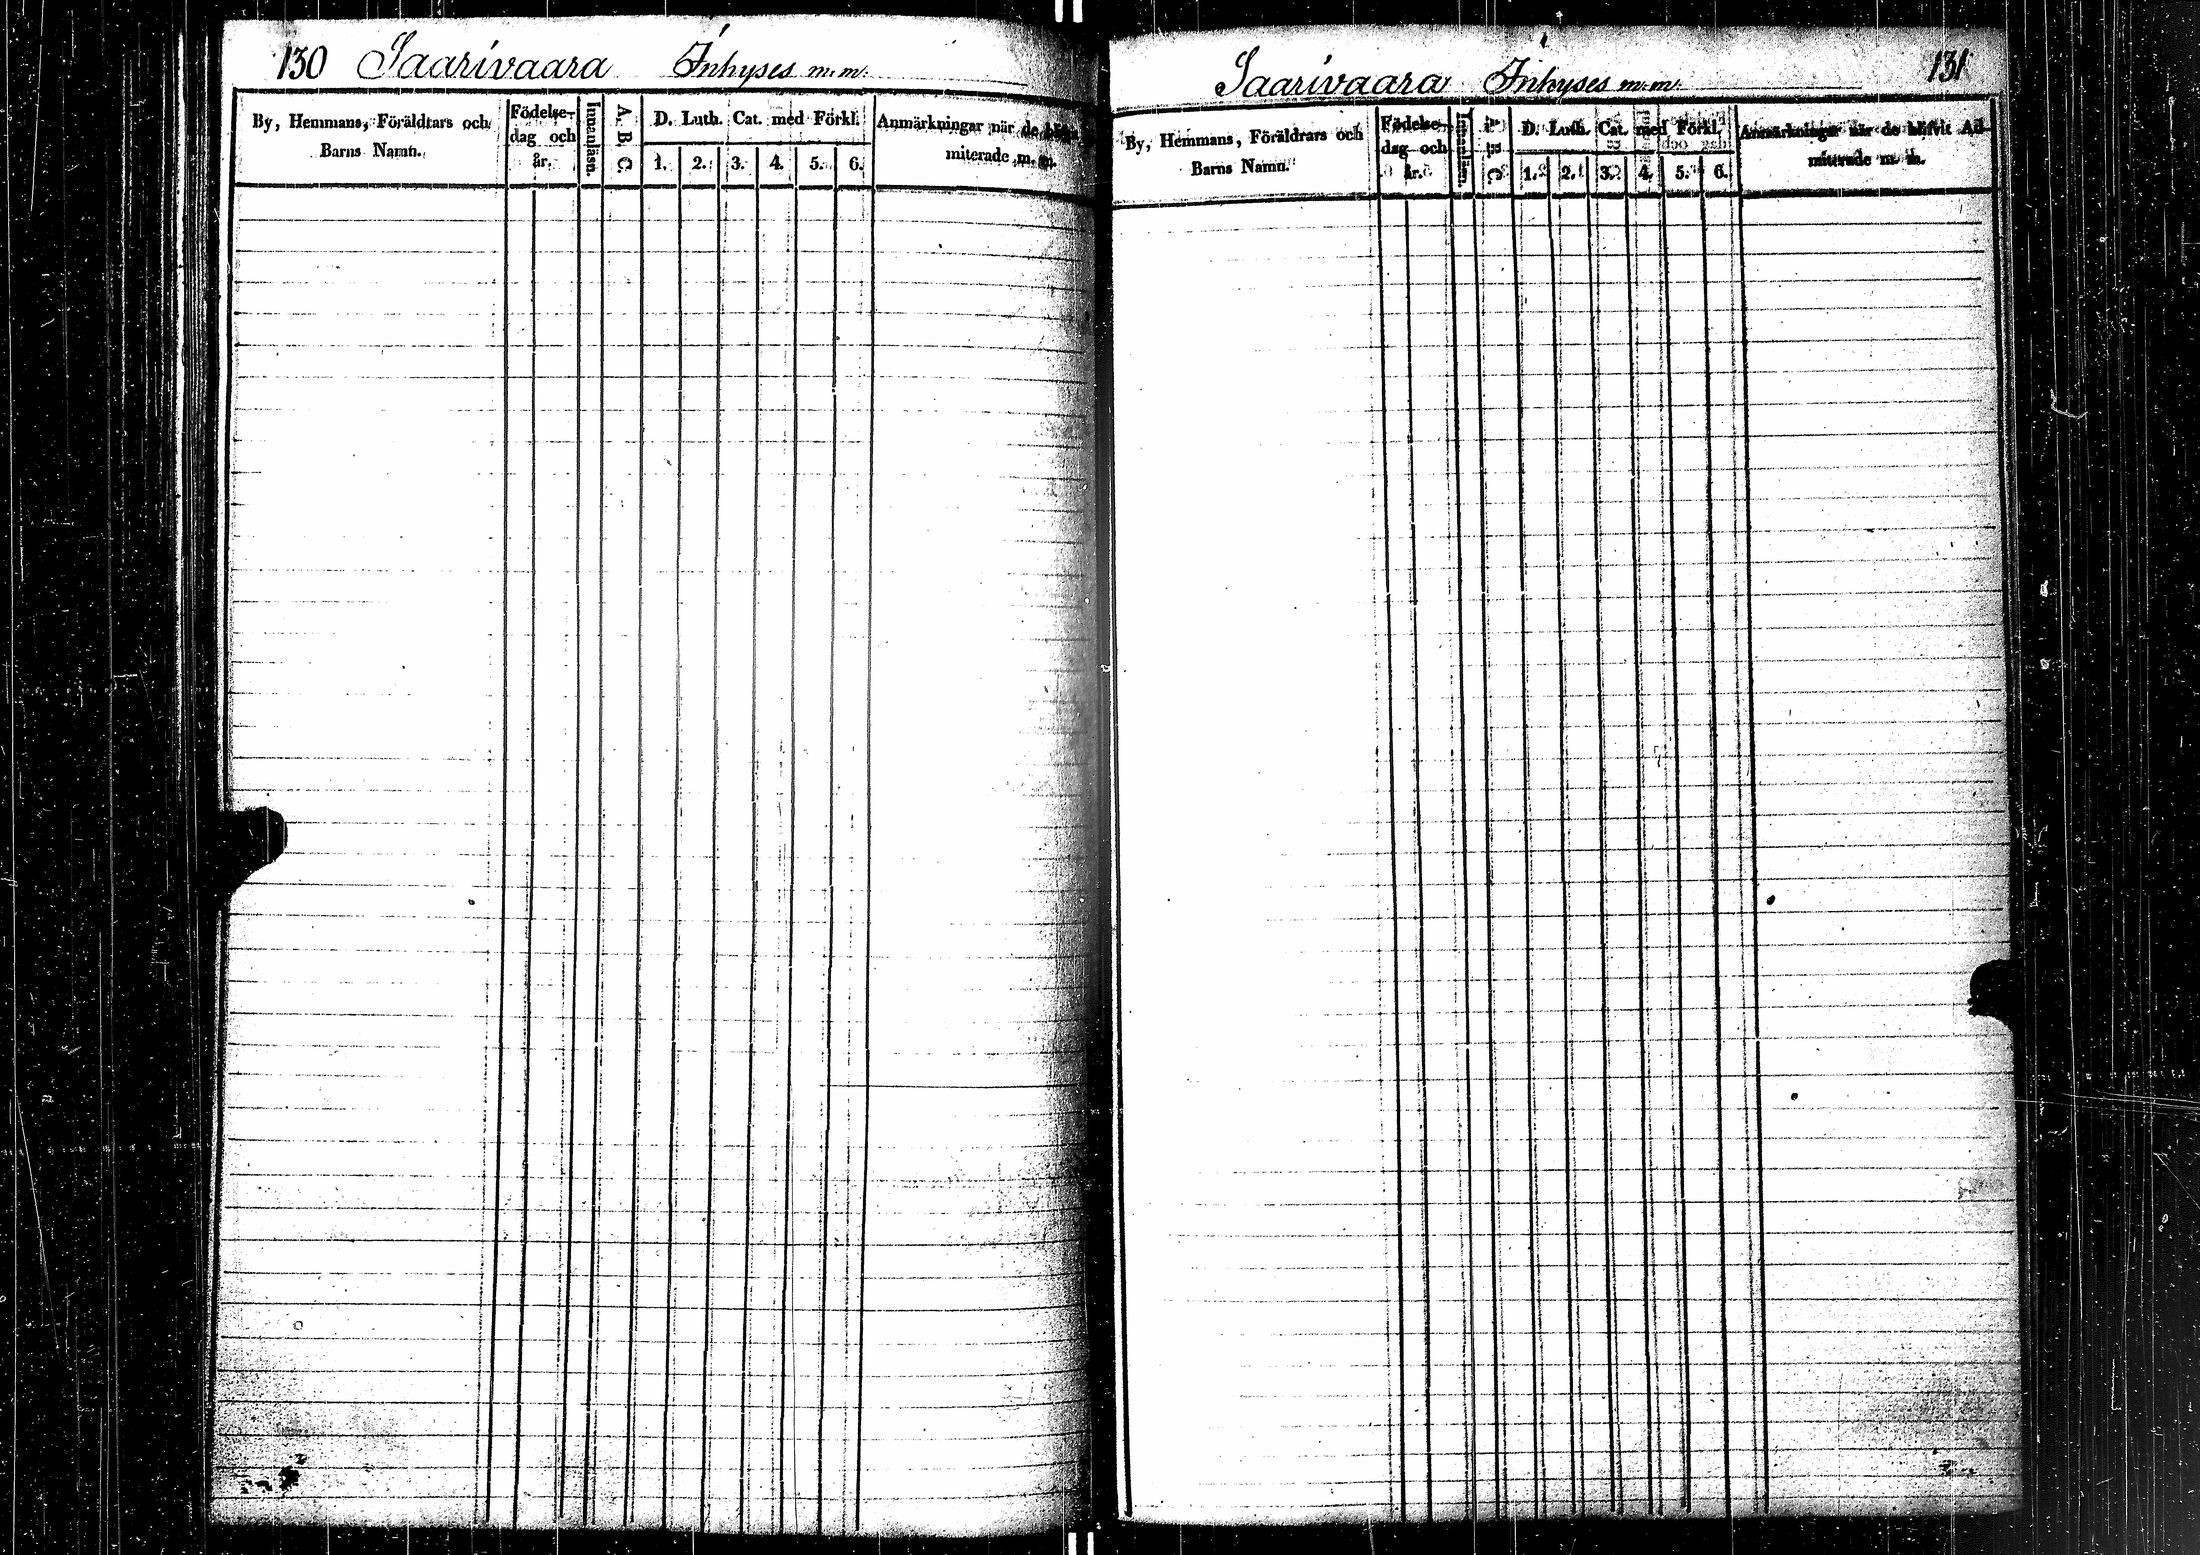 130 Saarivaara Inhyses m.m.
By, Hemmans, Föräldrars och
Barns Namn.
Födelse-
dag och
år.
Innanläsn.
A. B. C.
D. Luth. Cat. med Förkl.
1. 2. 3. 4. 5. 6.
Anmärkningar när de
miterade m. m.
Saarivaara Inhyses m.m. 131
By, Hemmans, Föräldrars och
Barns Namn.
Födelse-
dag och
år.
Innanläsn.
A. B. C.
D. Luth. Cat. med Förkl.
1. 2. 3. 4. 5. 6.
Anmärkningar när de blifvit Ad-
miterade m. m.